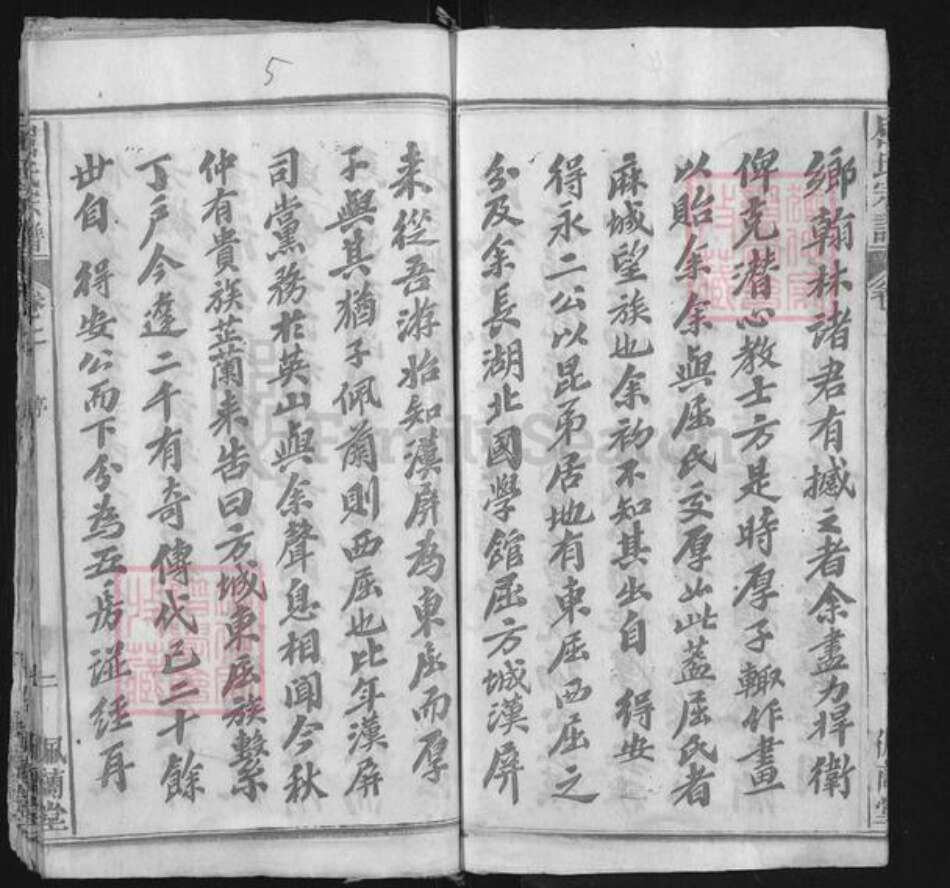 鄉翰林諸君有撼之者余盡力捍衛
俾克潛心教士方是時厚子輙作畫
以貽余余與屈氏交厚如此蓋屈氏者
麻城望族也余初不知其出自 得安
得永二公以昆弟居地有東屈西屈之
分及余長湖北國學館屈方城漢屏
來從吾游始知漢屏為東屈而厚
子與其猶子佩蘭則西屈也比年漢屏
司黨務於英山與余聲息相聞今秋
仲有貴族芷蘭來告曰方城東屈族繫
丁戶今達二千有奇傳代已二十餘
世自 得安公而下分為五房譜經再
屈氏宗譜
卷之一 序
二
佩蘭堂
5
FamilySearch